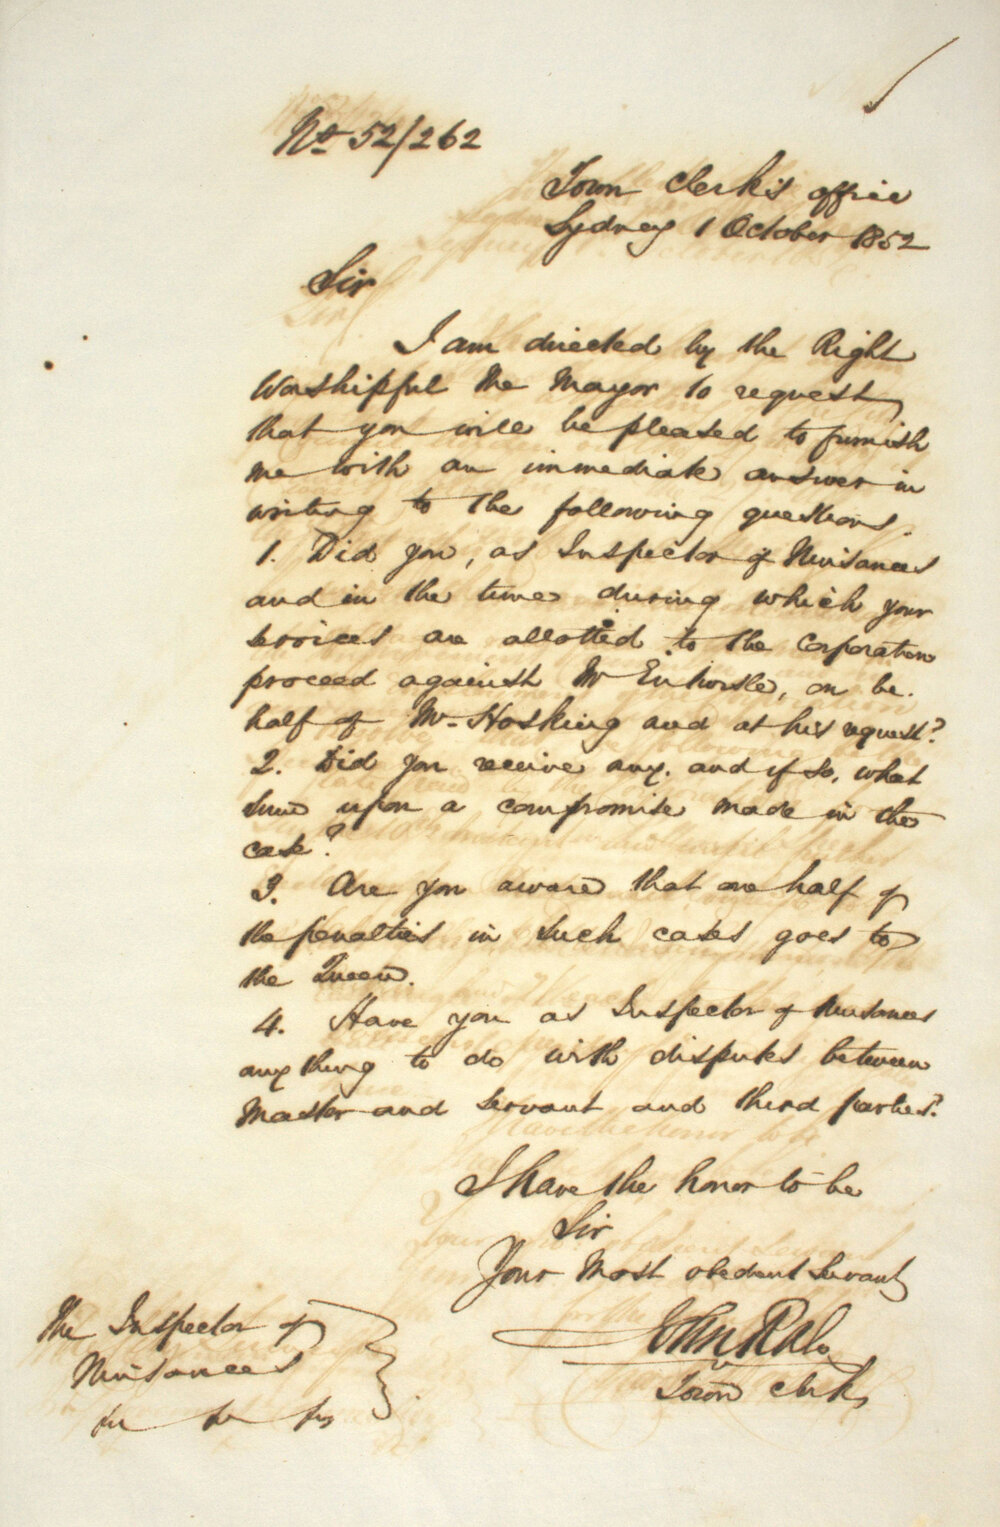 No 52/262
Town Clerk's office
Sydney 1 October 1852
Sir
I am directed by the Right
Worshipful the Mayor to request,
that you will be pleased to furnish
me with an immediate answer in
writing to the following questions.
1. Did you, as Inspector of Nuisances
and in the time during which your
services are allotted to the Corporation
proceed against Mr
, on be.
half of Mr Hosking and at his request?
2. Did you receive any. and if so, what
sum upon a compromise made in the
case?
3. Are you aware that one half of
the penalties in such cases goes to
the Queen.
4. Have you as Inspector of Nuisances
any thing to do with disputes between
Master and Servant and third parties?
I have the honor to be
Sir
Your Most obedient Servant
John Rae
Town Clerk
The Inspector of
Nuisances